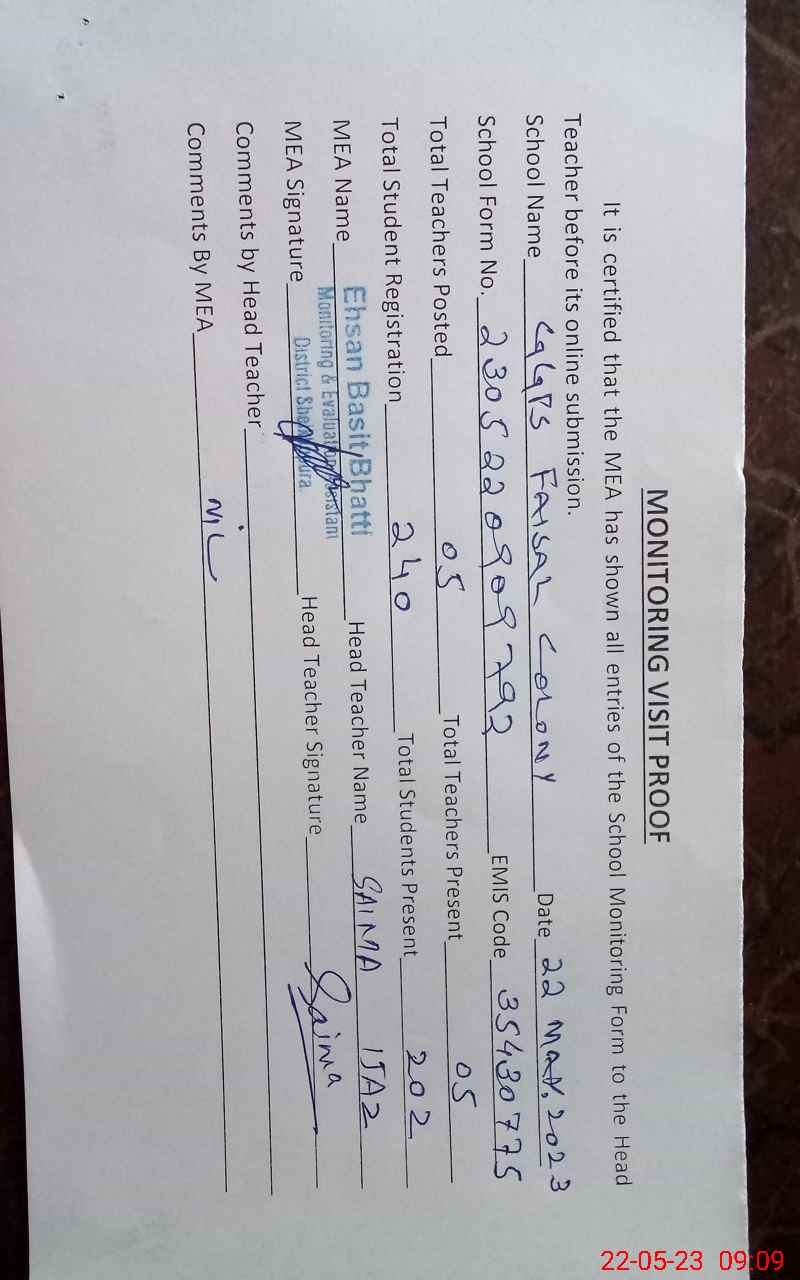 MONITORING VISIT PROOF
It is certified that the MEA has shown all entries of the School Monitoring Form to the Head
Teacher before its online submission.
School Name GGPS FAISAL COLONY Date 22 MAY, 2023
School Form No. 230522090792 EMIS Code 35430775
Total Teachers Posted 05 Total Teachers Present 05
Total Student Registration 240 Total Students Present 202
MEA Name Ehsan Basit Bhatti Head Teacher Name SAIMA IJAZ
Monitoring & Evaluation Assistant
MEA Signature District Sheikhupura. Head Teacher Signature Saima
Comments by Head Teacher
Comments By MEA NIL
22-05-23 09:09